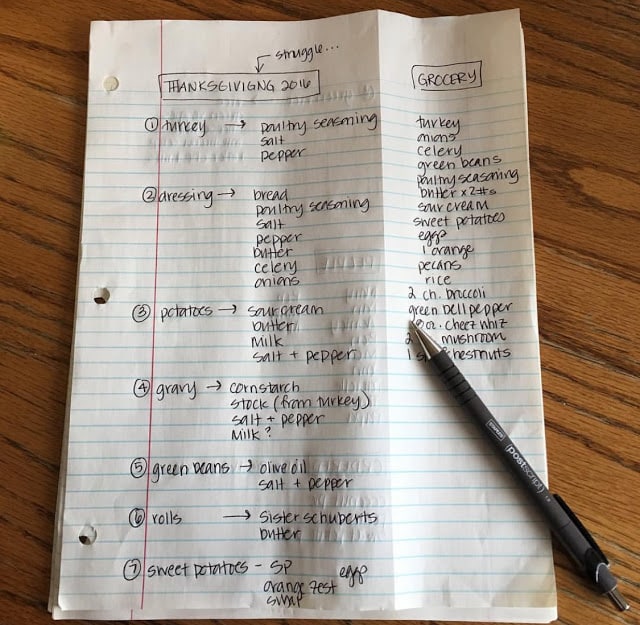 struggle...
THANKSGIVIGNG 2016
① turkey → poultry seasoning
salt
pepper
② dressing → bread
poultry seasoning
salt
pepper
butter
celery
onions
③ potatoes → sour cream
butter
milk
salt + pepper
④ gravy → cornstarch
stock (from turkey)
salt + pepper
milk?
⑤ green beans → olive oil
salt + pepper
⑥ rolls → Sister Schuberts
butter
⑦ sweet potatoes - SP eggs
orange zest
GROCERY
turkey
onions
celery
green beans
poultry seasoning
butter x 2#s
sour cream
sweet potatoes
eggs
1 orange
pecans
rice
2 ch. broccoli
green bell pepper
oz. cheez whiz
2 mushroom
1 chestnuts
(postscript)